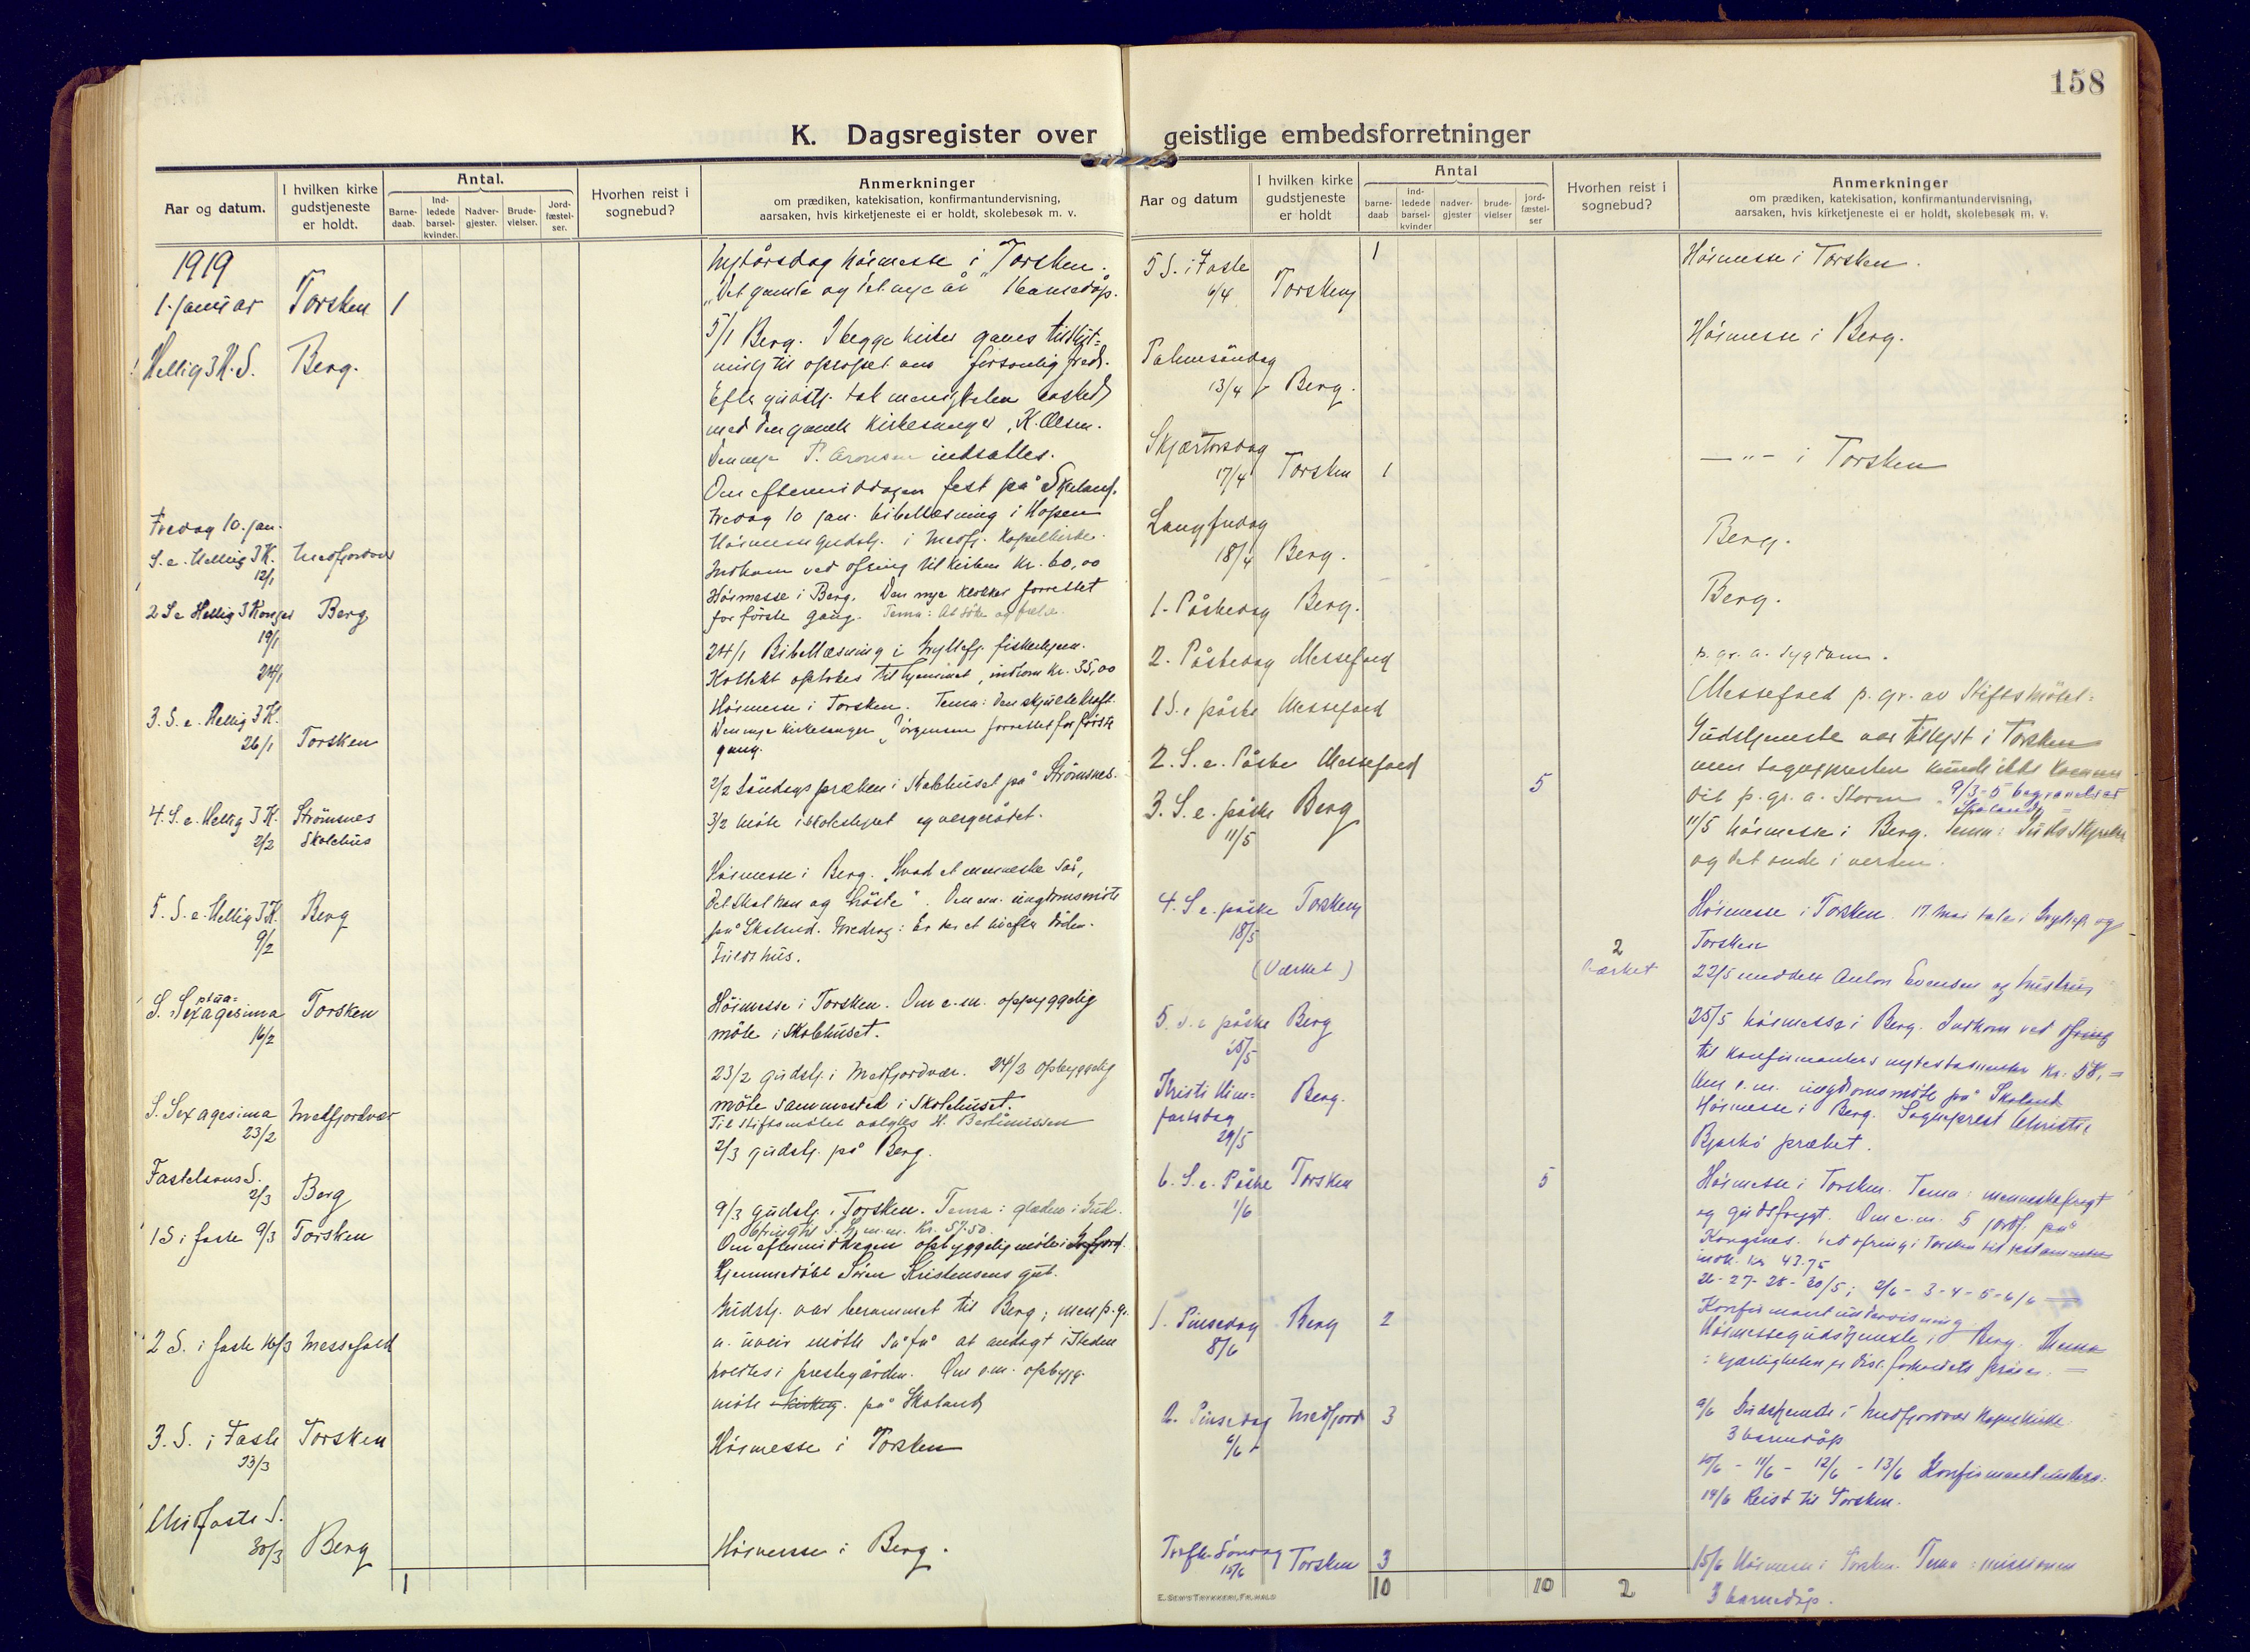 158
K. Dagsregister over geistlige embedsforretninger
Aar og datum.
I hvilken kirke gudstjeneste er holdt.
Antal.
Barne-daab.
Ind-ledede barsel-kvinder.
Nadver-gjester.
Brude-vielser.
Jord-fæstel-ser.
Hvorhen reist i sognebud?
Anmerkninger
om prædiken, katekisation, konfirmantundervisning,
aarsaken, hvis kirketjeneste ei er holdt, skolebesøk m. v.
1919
1. januar Torsken 1
Nytårsdag höimesse i Torsken.
"Det gamle og det nye år" 1 barnedåp.
Hellig 3 K. S. Berg.
5/1 Berg. I begge kirker gaves
til opropet om fred.
Efter gudstj. tok menigheten
med den gamle kirkesanger, K. Olsen.
Den nye P. Aronsen indsattes.
Om eftermiddagen fest på Skaland.
Fredag 10. jan.
Fredag 10 jan. bibellæsning i Hopen
S. e. Hellig 3 K. Medfjordvær
12/1
Höimesse gudstj. i Medfj. Kapelkirke.
Indkom ved ofring til kirken Kr. 60,00
2 S e Hellig 3 Konger Berg
19/1
Höimesse i Berg. Den nye klokker forrettet
for förste gang. Tema: At söke og
24/1
24/1 Bibellæsning i Gryllefj. fiskerhjem.
Kollekt optokes til hjemmet, indkom Kr. 35,00
3. S. e. Hellig 3 K.
26/1 Torsken
Höimesse i Torsken. Tema: Den skjulte kraft.
Den nye kirkesanger Jörgensen forrettet for förste
gang.
4. S. e. Hellig 3 K. Strömsnes
2/2 Skolehus
2/2 Söndagspræken i Skolehuset på Strömsnes.
3/2 Möte i skolestyret og vergerådet.
5. S. e. Hellig 3 K. Berg
9/2
Höimesse i Berg. "Hvad et menneske sår,
det skal han og höste". Om em. ungdomsmöte
på Skaland. Foredrag: Er der et liv efter döden.
Fuldt hus.
S. Septuagesima Torsken
16/2
Höimesse i Torsken. Om e.m. opbyggelig
möte i skolehuset.
S. Sexagesima Medfjordvær
23/2
23/2 gudstj. i Medfjordvær. 24/2 opbyggelig
möte sammested i Skolehuset.
Til stiftsmötet valgtes H. Bertinussen
Fastelavns S.
2/3 Berg
2/3 gudstj. på Berg.
1 S i faste 9/3 Torsken
9/3 gudstj. i Torsken. Tema: glæden i Gud.
Ofring til S. Hj.m.m. Kr. 57.50.
Om eftermiddagen opbyggelig möte i
Hjemmedöbt Sören Kristensens gut.
2 S. i faste 16/3 Messefald
Gudstj. var berammet til Berg; men p. gr.
a. uveir mötte så få at andagt isteden
holdtes i prestegården. Om e.m. opbygg.
möte på Skaland
3. S. i Faste Torsken
23/3
Höimesse i Torsken
Midfaste S.
30/3 Berg
Höimesse i Berg.
1
Aar og datum
I hvilken kirke gudstjeneste er holdt
Antal
barne-daab
ind-ledede barsel-kvinder
nadver-gjester
brude-vielser
jord-fæstel-ser
Hvorhen reist i sognebud?
Anmerkninger
om prædiken, katekisation, konfirmantundervisning,
aarsaken, hvis kirketjeneste ei er holdt, skolebesøk m. v.
5 S. i Faste 1
6/4 Torsken
Höimesse i Torsken.
Palmesöndag
13/4 Berg.
Höimesse i Berg.
Skjærtorsdag
17/4 Torsken 1
—"— i Torsken
Langfredag
18/4 Berg.
Berg.
1. Påskedag Berg.
Berg.
2. Påskedag Messefald
p. gr. a. sygdom.
1 S. e påske Messefald
(Messefald p. gr. av Stiftsmötet.
2. S. e. Påske Messefald
Gudstjeneste var tillyst i Torsken
men sognepresten kunde ikke komme
dit p. gr. a. Storm. 9/3 - 5 begravelser
Skaland
5
3. S. e. påske Berg
11/5
11/5 höimesse i Berg. Tema: Guds
og det onde i verden.
4. S e. påske Torsken
18/5
(Værket)
2
Værket
Höimesse i Torsken. 17 mai tale i Gryllefj. og
Torsken
22/5 meddelt Anton Evensen og hustru
5. S. e påske Berg
25/5
25/5 höimesse i Berg. Indkom ved ofring
til konfirmanters nytestamenter Kr. 58,=
Om e.m. ungdomsmöte på Skaland
Kristi Him= Berg.
fartsdag
29/5
Höimesse i Berg. Sogneprest Christie
Bjarkö præket.
6. S. e. Påske Torsken 5
1/6
Höimesse i Torsken. Tema: menneskefrygt
og gudsfrygt. Om e.m. 5 jordf. på
Kongsnes. Ved ofring i Torsken til testamenter
indk. Kr 43.75
26-27-28-30/5; 2/6-3-4-5-6/6
Konfirmantundervisning
1. Pinsedag Berg 2
8/6
Höimessegudstjeneste i Berg. Thema
: Kjærligheten er
2. Pinsedag Medfjord 3
9/6
9/6 Gudstjeneste i Medfjordvær Kapelkirke.
3 barnedåp
10/6 - 11/6 - 12/6 - 13/6 Konfirmantunderv.
14/6 Reist til Torsken.
Trefh. Söndag
15/6 Torsken 3
15/6 Höimesse i Torsken. Tema: missionen
3 barnedåp.
10 10 2
E. SEM'S TRYKKERI, FR.HALD